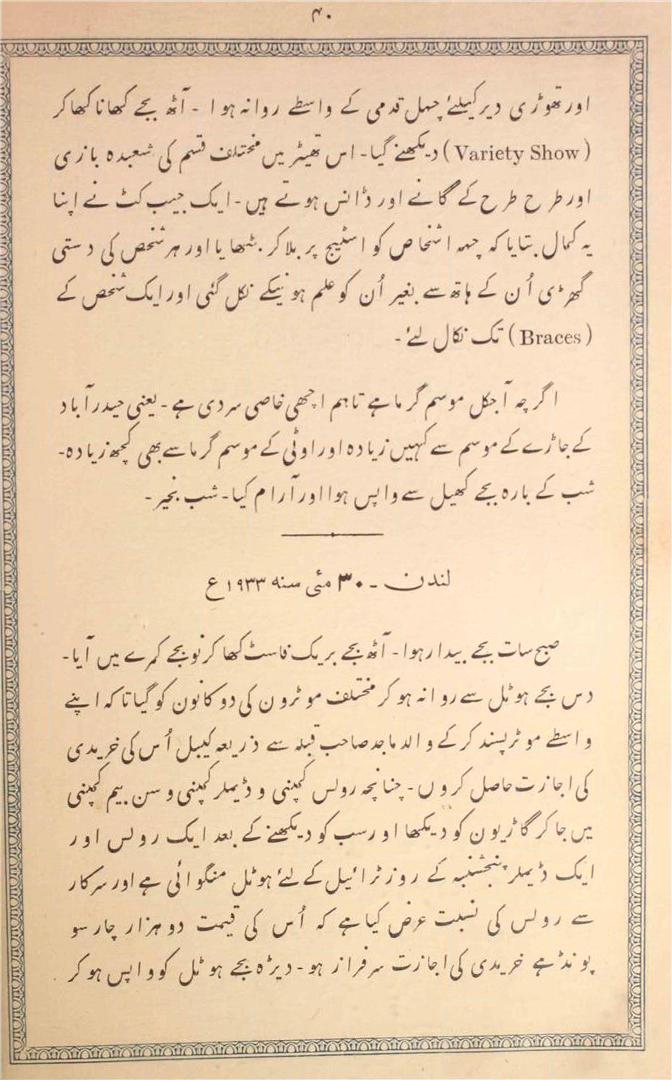 ۴۰
اور تھوڑی دیر کیلئے چہل قدمی کے واسطے روانہ ہوا ۔ آٹھ بجے کھانا کھا کر
(Variety Show) دیکھنے گیا۔ اس تھیٹر میں مختلف قسم کی شعبدہ بازی
اور طرح طرح کے گانے اور ڈانس ہوتے ہیں۔ ایک جیب کٹ نے اپنا
یہ کمال بتایا کہ چھہ اشخاص کو اسٹیج پر بلا کر بٹھایا اور ہر شخص کی دستی
گھڑی اُن کے ہاتھ سے بغیر اُن کو علم ہونیکے نکل گئی اور ایک شخص کے
(Braces) تک نکال لئے ۔
اگر چہ آجکل موسم گرما ہے تاہم اچھی خاصی سردی ہے ۔ یعنی حیدرآباد
کے جاڑے کے موسم سے کہیں زیادہ اور اوٹی کے موسم گرما سے بھی کچھ زیادہ۔
شب کے بارہ بجے کھیل سے واپس ہوا اور آرام کیا۔ شب بخیر ۔
لندن ۔ ۳۰ مئی سنہ ۱۹۳۳ ع
صبح سات بجے بیدار ہوا۔ آٹھ بجے بریک فاسٹ کھا کر نو بجے کمرے میں آیا۔
دس بجے ہوٹل سے روانہ ہو کر مختلف موٹرون کی دوکانون کو گیا تاکہ اپنے
واسطے موٹر پسند کر کے والد ماجد صاحب قبلہ سے ذریعہ کیبل اُس کی خریدی
کی اجازت حاصل کروں۔ چنانچہ رولس کمپنی و ڈیملر کمپنی و سن بیم کمپنی
میں جا کر گاڑیون کو دیکھا اور سب کو دیکھنے کے بعد ایک رولس اور
ایک ڈیملر پنجشنبہ کے روز ٹرائیل کے لئے ہوٹل منگوائی ہے اور سرکار
سے رولس کی نسبت عرض کیا ہے کہ اُس کی قیمت دو ہزار چار سو
پونڈ ہے خریدی کی اجازت سرفراز ہو۔ دیڑہ بجے ہوٹل کو واپس ہو کر